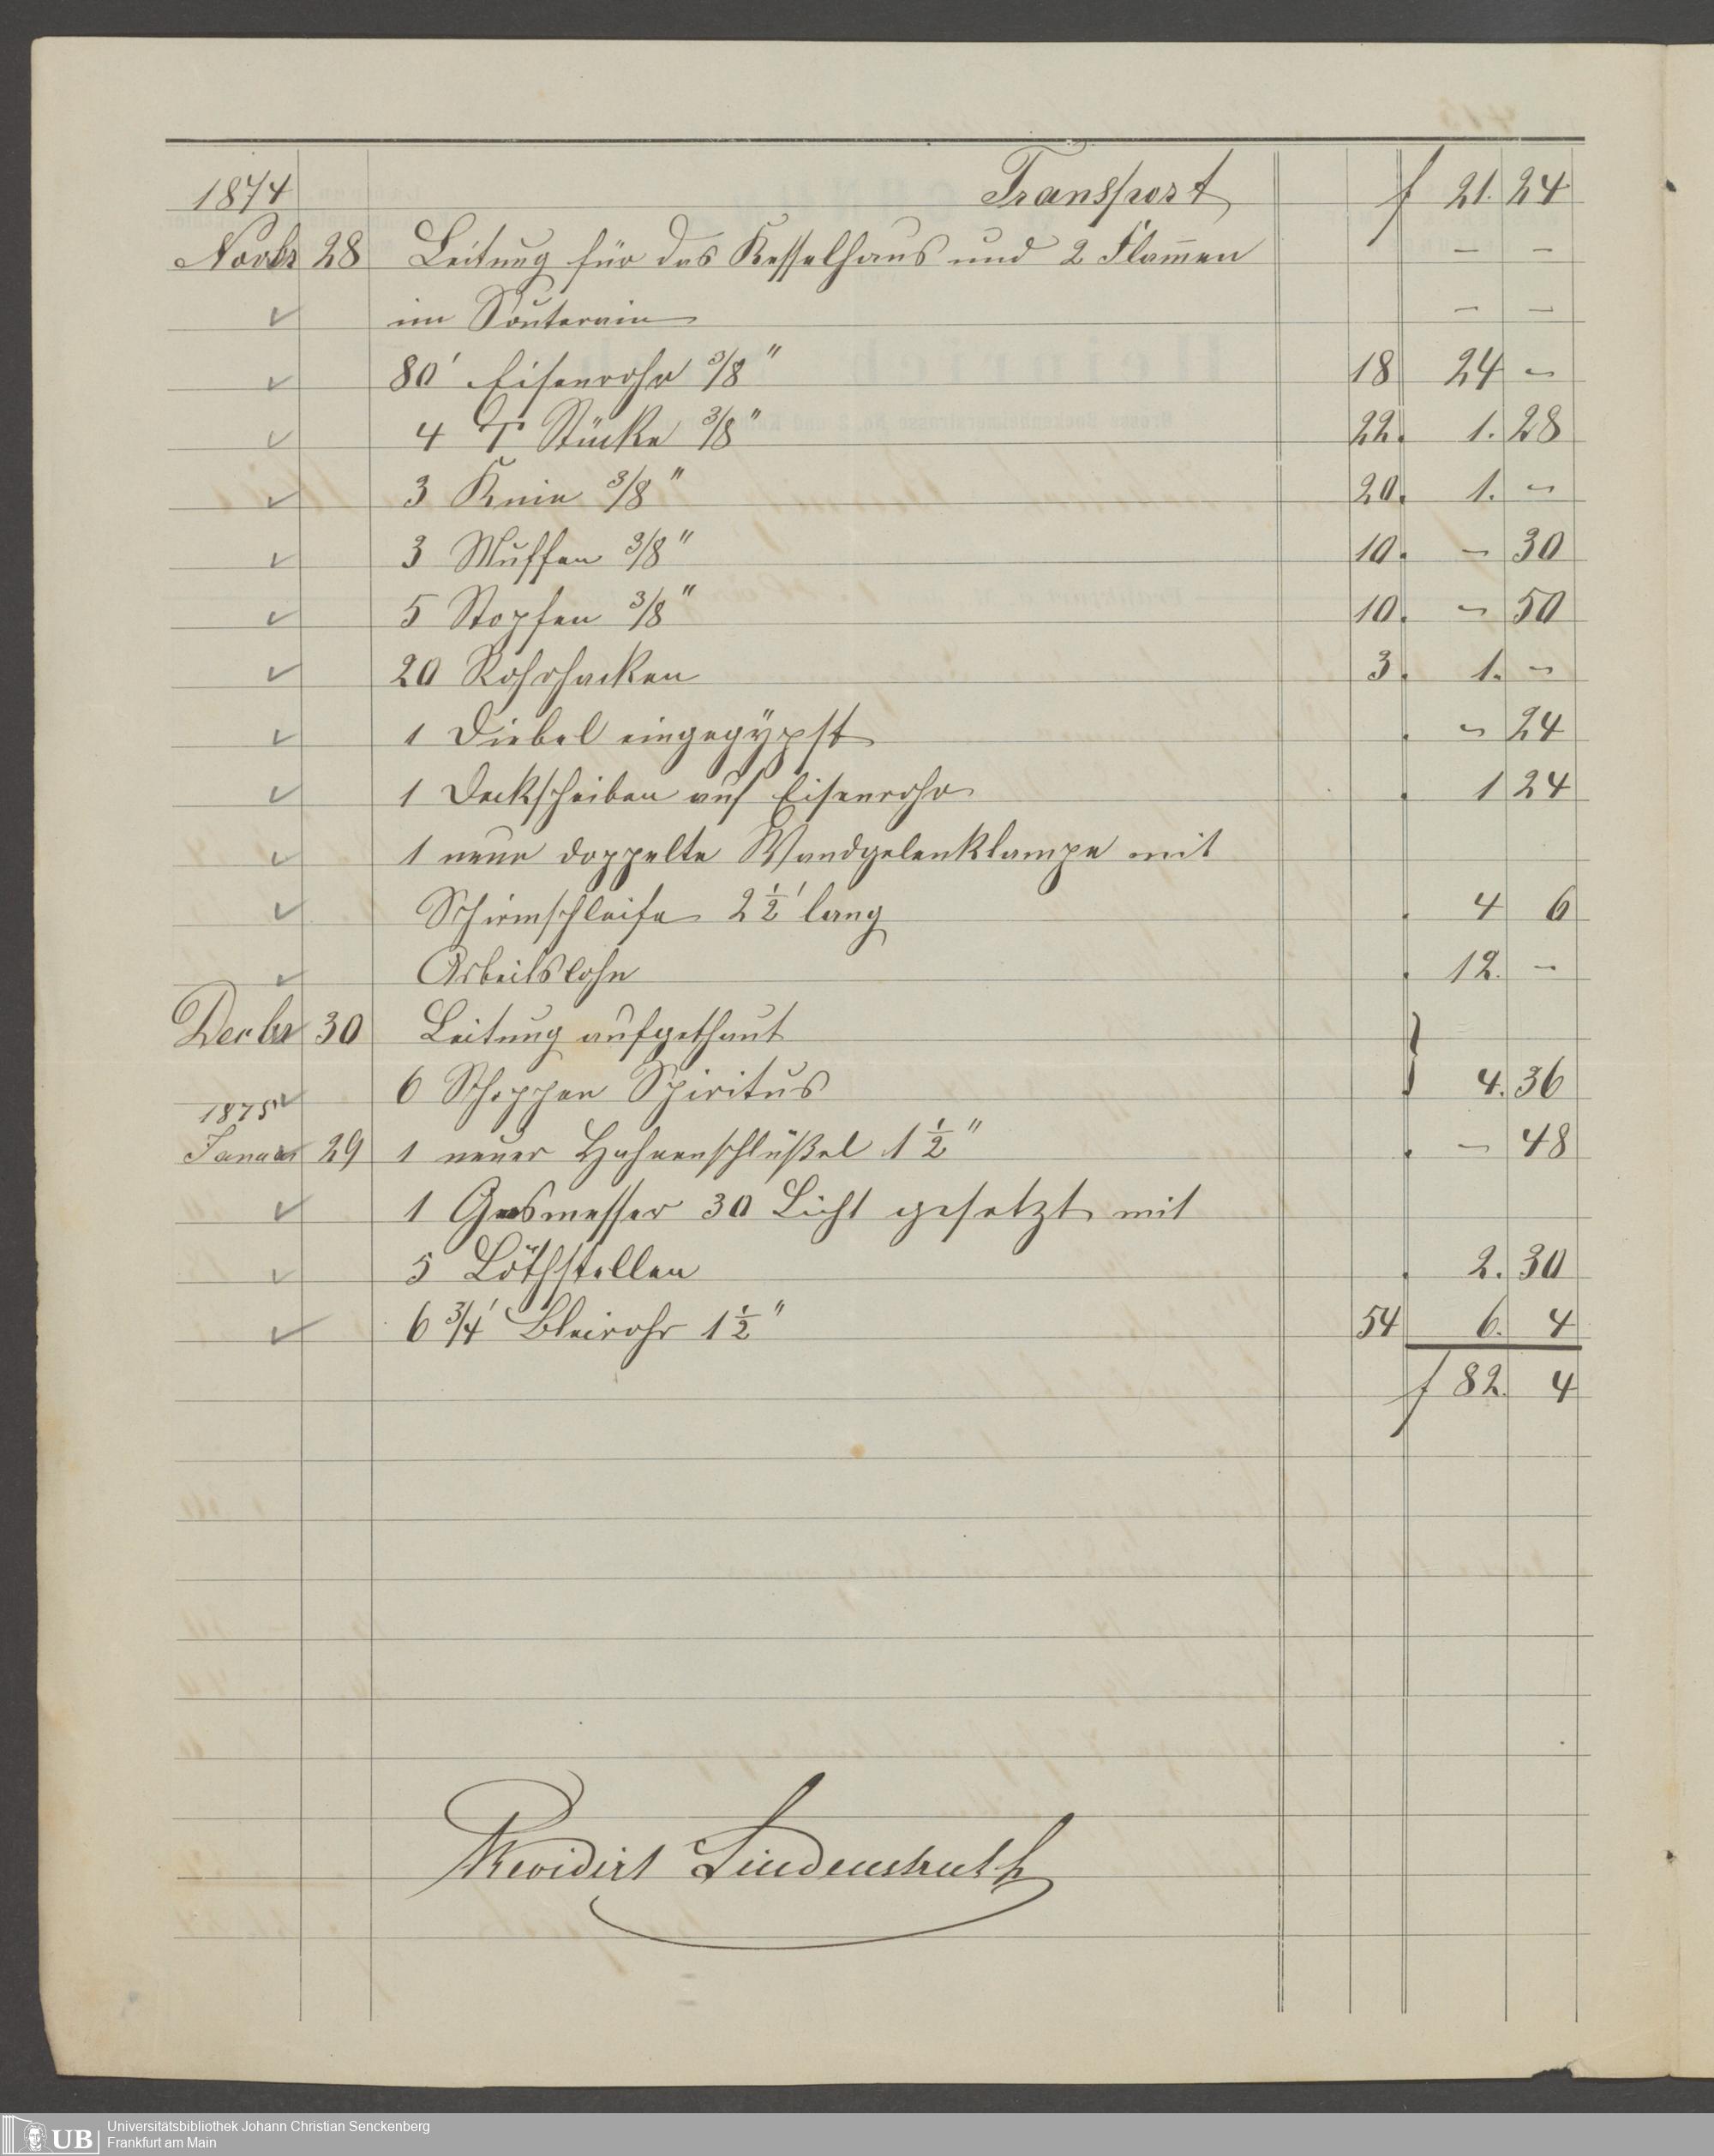 1874 Transport f 21. 24
Novbr 28 Leitung für das Kesselhaus und 2 Flam̄en – –
im Souterain – –
80' Eisenrohr 3/8" 18 24 –
4 T Stücke 3/8" 22. 1. 28
3 Knie 3/8" 20. 1. –
3 Muffen 3/8" 10. – 30
5 Stopfen 3/8" 10. – 50
20 Rohrhacken 3. 1. –
1 Diebel eingegÿpst . – 24
1 Deckscheiben auf Eisenrohr . 1 24
1 neue doppelte Wandgelenklampe mit
Schirmschleife 2 1/2' lang . 4 6
Arbeitslohn . 12. –
Decbr 30 Leitung aufgethaut
6 Schoppen Spiritus } 4. 36
1875
Januar 29 1 neuer Hahnenschlüßel 1 1/2" . – 48
1 Gasmesser 30 Licht gesetzt mit
5 Löthstellen . 2. 30
6 3/4' Bleirohr 1 1/2" 54 6. 4
f 82. 4
Revidirt Lindenstruth
UB Universitätsbibliothek Johann Christian Senckenberg
Frankfurt am Main